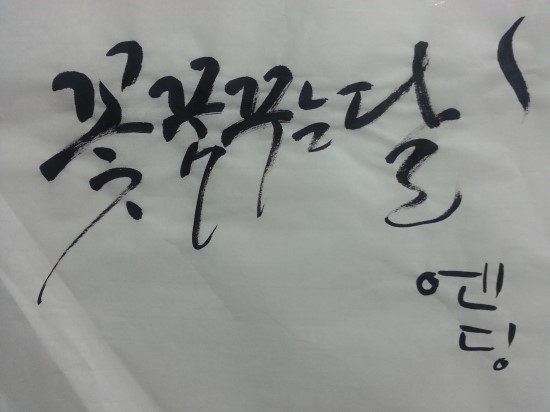 꽃꿈꾸는달
엔
딩